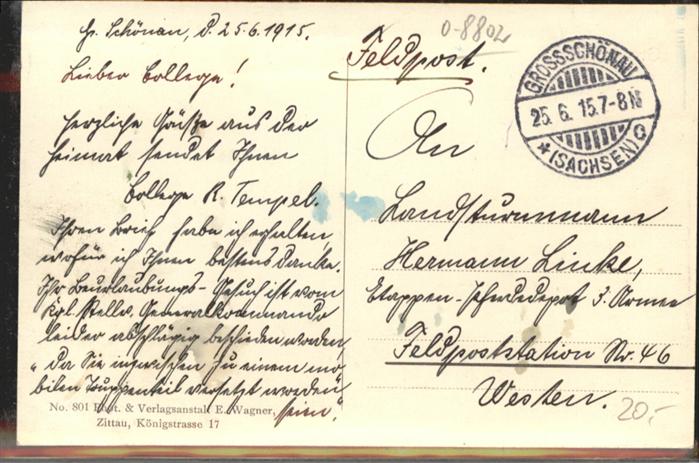 Gr. Schönau, d. 25.6.1915.
Lieber College!
Herzliche Grüße aus der
Heimat sendet Ihnen
College R. Tempel.
Ihren Brief habe ich erhalten,
wofür ich Ihnen bestens danke.
Ihr Beurlaubungs-Gesuch ist vom
Kgl. Stellv. Generalkommando
leider abschlägig beschieden worden,
"da Sie inzwischen zu einem mo-
bilen Truppenteil versetzt worden
seien."
No. 801 Phot. & Verlagsanstalt E. Wagner,
Zittau, Königstrasse 17
0-8802
Feldpost.
GROSSSCHÖNAU
25. 6. 15. 7-8 N
* (SACHSEN) c
An
Landsturmmann
Hermann Linke,
Etappen-Pferdedepot 3. Armee
Feldpoststation Nr. 46
Westen.
20.-